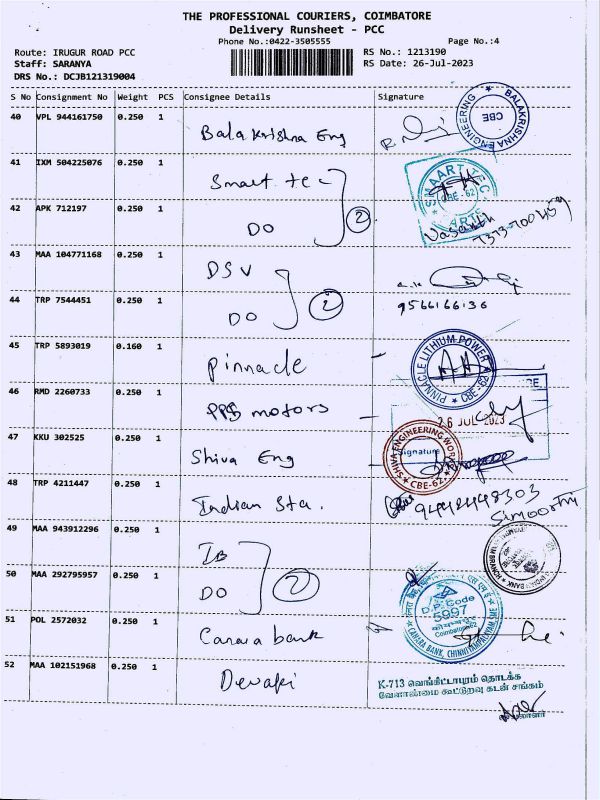 THE PROFESSIONAL COURIERS, COIMBATORE
Delivery Runsheet - PCC
Phone No.:0422-3505555 Page No.:4
Route: IRUGUR ROAD PCC RS No.: 1213190
Staff: SARANYA RS Date: 26-Jul-2023
DRS No.: DCJB121319004
S No Consignment No Weight PCS Consignee Details Signature
40 VPL 944161750 0.250 1 Balakrishna Eng BALAKRISHNA ENGINEERING CBE
41 IXM 504225076 0.250 1 Smart Tec SMAART TEC CBE-62
42 APK 712197 0.250 1 DO 2 Vasanth
43 MAA 104771168 0.250 1 DSV
44 TRP 7544451 0.250 1 DO 2 9566166136
45 TRP 5893019 0.160 1 Pinnacle PINNACLE LITHIUM POWER CBE-62
46 RMD 2260733 0.250 1 PPS motors 26 JUL 2023
47 KKU 302525 0.250 1 Shiva Eng SHIVA ENGINEERING WORKS CBE-62 Signature
48 TRP 4211447 0.250 1 Indian Sta. 9442448303
S.Moorthy
49 MAA 943912296 0.250 1 IB
50 MAA 292795957 0.250 1 DO 2 D.P. Code 5997 Coimbatore
51 POL 2572032 0.250 1 Canara bank CANARA BANK, CHINNIYAMPALAYAM
52 MAA 102151968 0.250 1 Devaki
K-713 வெங்கிட்டாபுரம் தொடக்க
வேளாண்மை கூட்டுறவு கடன் சங்கம்